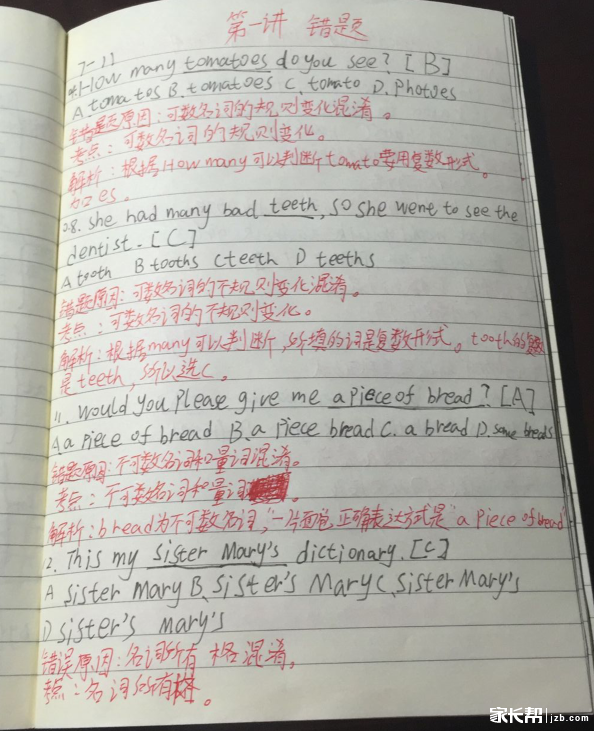 第一讲 错题
7-11
*1.How many tomatoes do you see? [B]
A tomatos B. tomatoes C. tomato D. Photoes
错题原因:可数名词的规则变化混淆。
考点:可数名词的规则变化。
解析:根据How many可以判断tomato要用复数形式。
为es。
8. she had many bad teeth, so she went to see the
dentist. [C]
A tooth B tooths C teeth D teeths
错题原因:可数名词的不规则变化混淆。
考点:可数名词的不规则变化。
解析:根据many可以判断,所填的词是复数形式。tooth的复数
是teeth,所以选C。
11. would you please give me a piece of bread? [A]
A.a piece of bread B. a piece bread C. a bread D. some breads
错题原因:不可数名词和量词混淆。
考点:不可数名词和量词。
解析:bread为不可数名词,"一片面包"正确表达方式是"a piece of bread"
12. This my sister Mary's dictionary. [C]
A sister mary B. sister's Mary C. sister Mary's
D sister's mary's
错误原因:名词所有格混淆,
考点:名词所有格。
家长帮 jzb.com